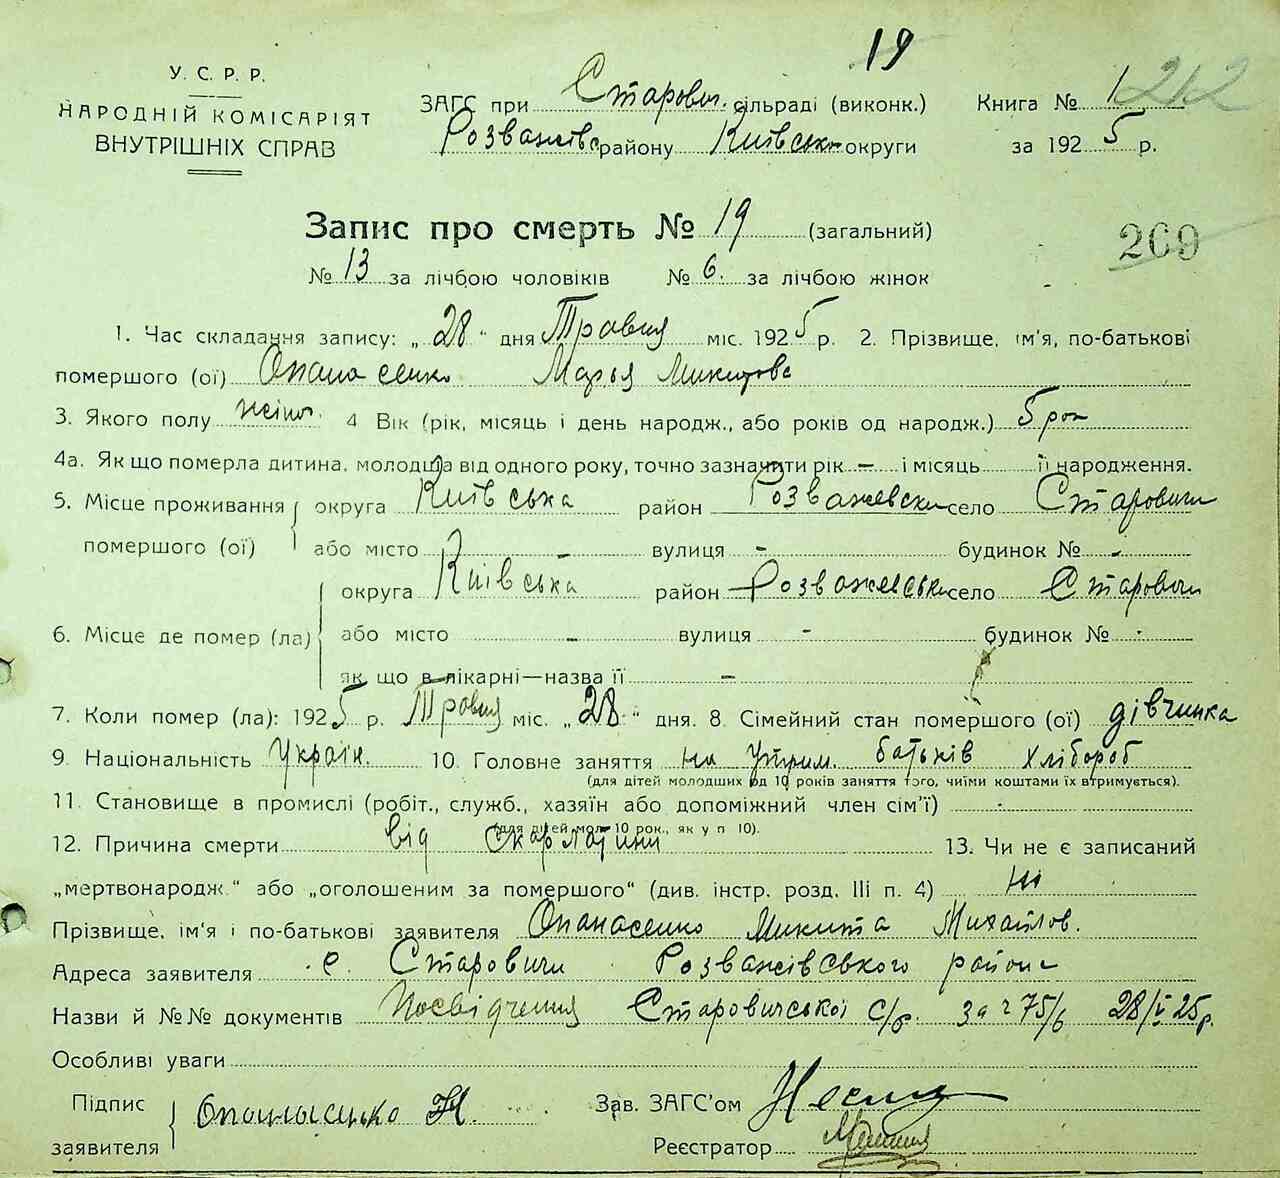 19
У. С. Р. Р.
НАРОДНІЙ КОМІСАРІЯТ
ВНУТРІШНІХ СПРАВ
ЗАГС при Старович. сільраді (виконк.)
Розважівс району Київськ округи
Книга № 1 212
за 1925 р.
Запис про смерть № 19 (загальний)
269
№ 13 за лічбою чоловіків № 6. за лічбою жінок
1. Час складання запису: „28“ дня Травня міс. 1925 р. 2. Прізвище, ім'я, по-батькові
помершого (ої) Опанасенко Марья Микитова
3. Якого полу жіноч. 4 Вік (рік, місяць і день народж., або років од народж.) 5 рок
4а. Як що померла дитина, молодша від одного року, точно зазначити рік – і місяць її народження.
5. Місце проживання округа Київська район Розважевськ село Старовичи
помершого (ої) або місто - вулиця - будинок № -
округа Київська район Розважевськ село Старовичи
6. Місце де помер (ла) або місто - вулиця - будинок № -
як що в лікарні—назва її –
7. Коли помер (ла): 1925 р. Травня міс. „28“ дня. 8. Сімейний стан помершого (ої) дівчинка
9. Національність Україн. 10. Головне заняття на утрим. батьків хлібороб
(для дітей молодших од 10 років заняття того, чиїми коштами їх втримується).
11. Становище в промислі (робіт., служб., хазяїн або допоміжний член сім'ї) -
(для дітей мол. 10 рок., як у п 10).
12. Причина смерти від скарлатини 13. Чи не є записаний
„мертвонародж.“ або „оголошеним за помершого“ (див. інстр. розд. III п. 4) ні
Прізвище, ім'я і по-батькові заявителя Опанасенко Микита Михайлов.
Адреса заявителя с. Старовичи Розважівського района
Назви й №№ документів Посвідчення Старовичської с/р. за ч 75/6 28/V 25р.
Особливі уваги
Підпис
заявителя Опанасенко М.
Зав. ЗАГС'ом
Реєстратор